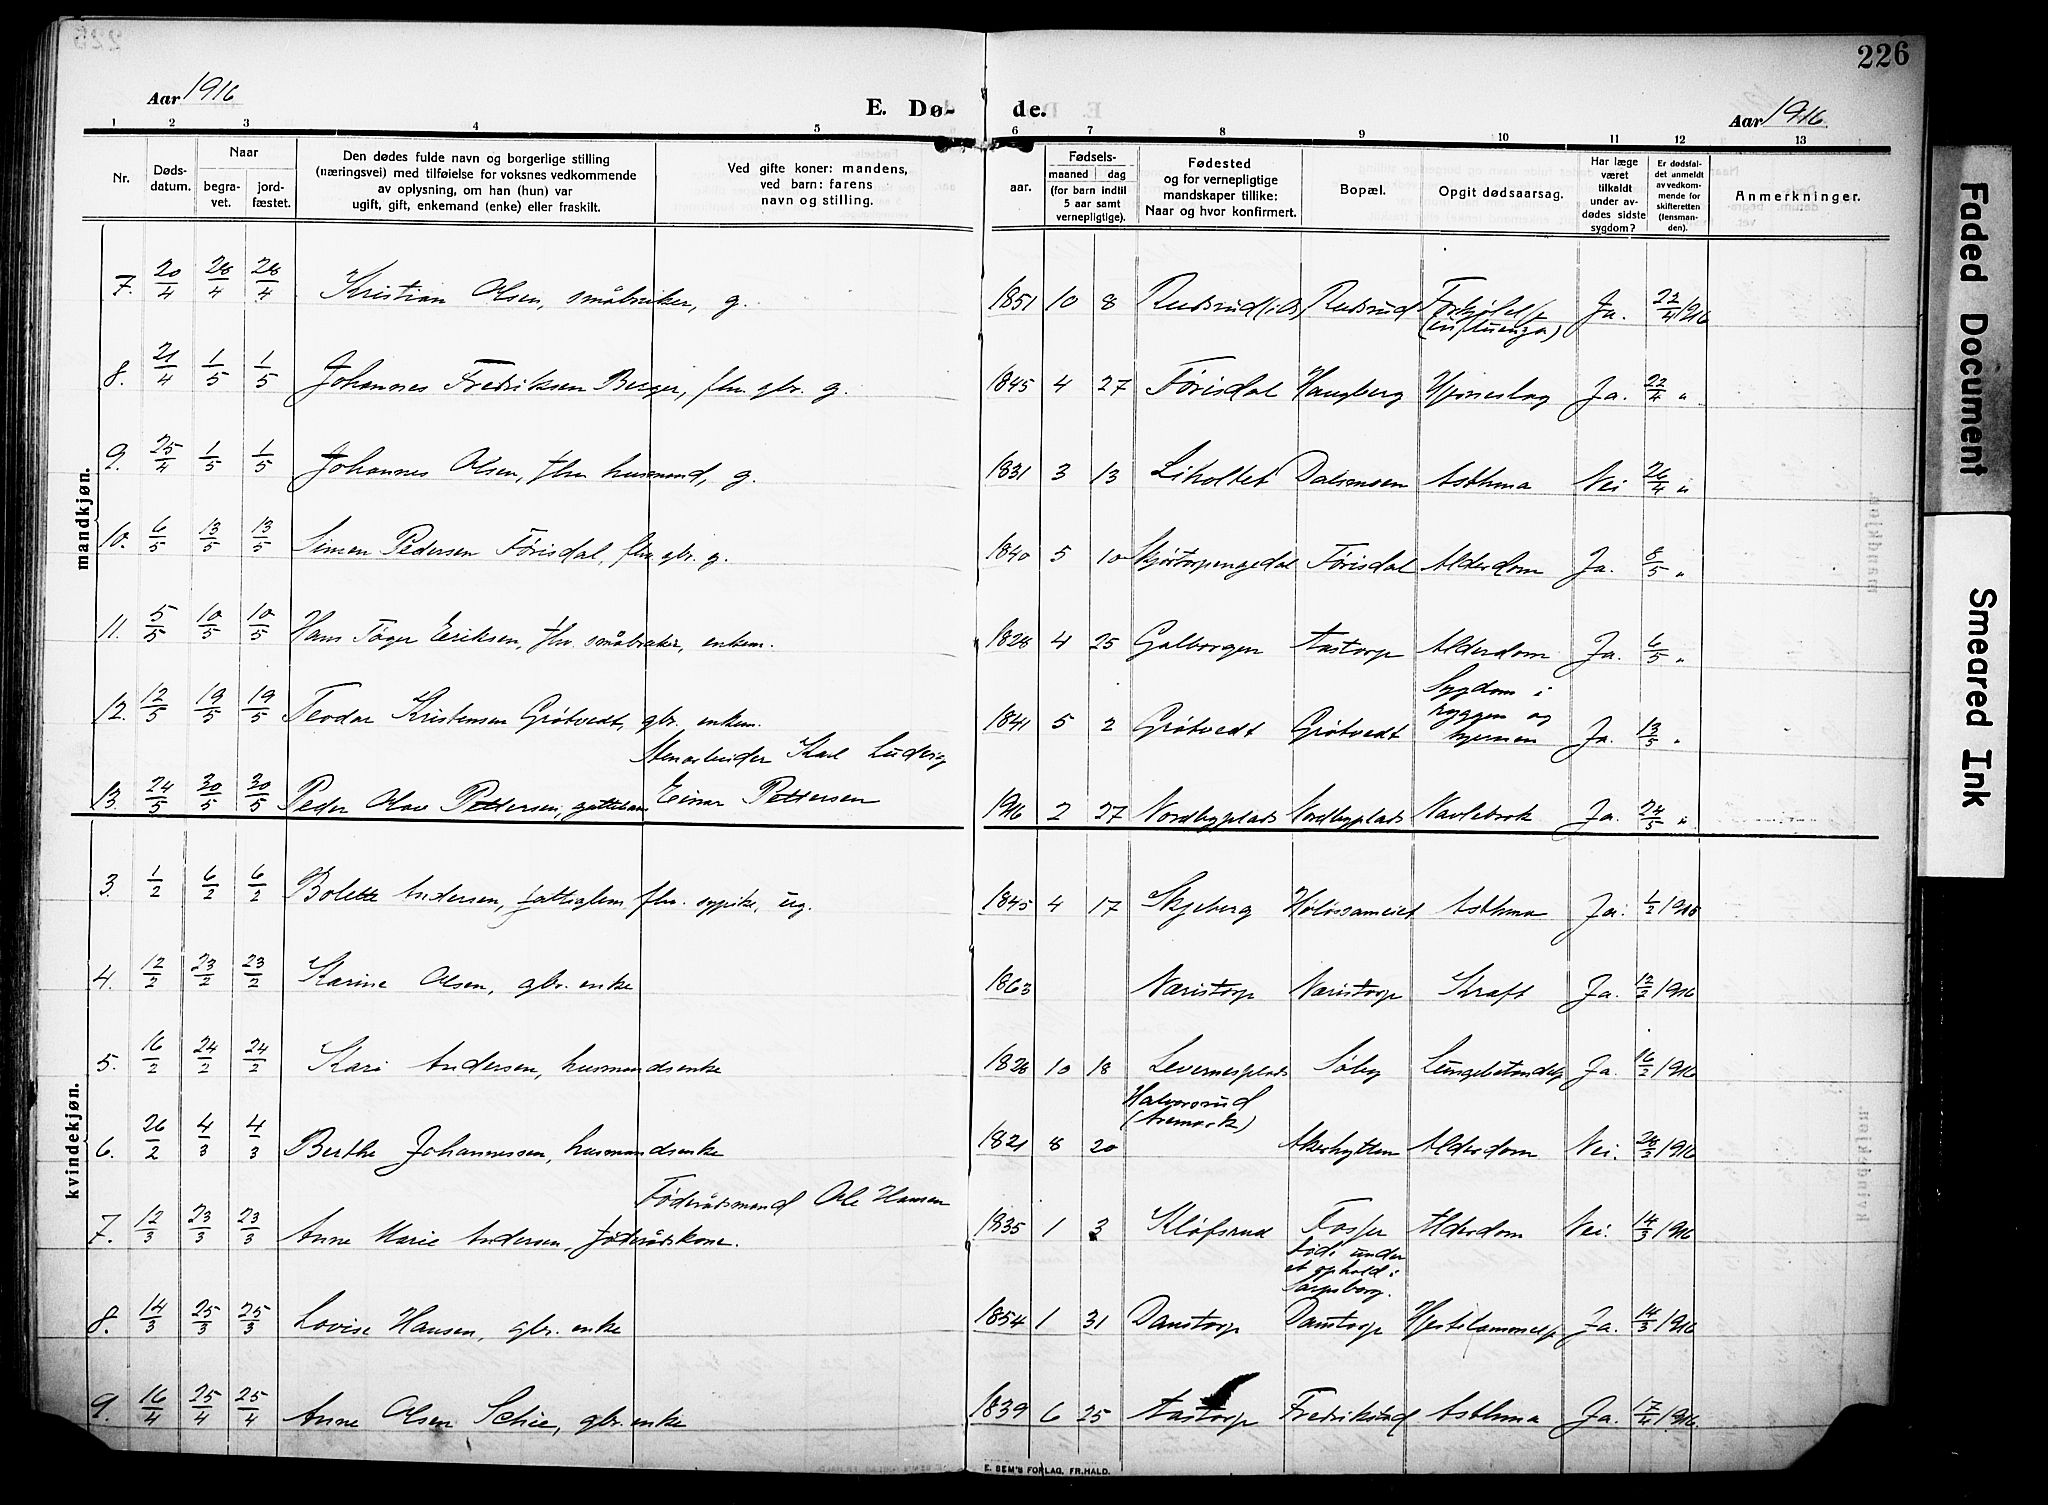 226
Aar 1916
E. Dø-
de.
Aar 1916
1 2 3 4 5 6 7 8 9 10 11 12 13
Nr.
Døds-
datum.
Naar
begra-
vet.
jord-
fæstet.
Den dødes fulde navn og borgerlige stilling
(næringsvei) med tilføielse for voksnes vedkommende
av oplysning, om han (hun) var
ugift, gift, enkemand (enke) eller fraskilt.
Ved gifte koner: mandens,
ved barn: farens
navn og stilling.
aar.
Fødsels-
maaned dag
(for barn indtil
5 aar samt
vernepligtige).
Fødested
og for vernepligtige
mandskaper tillike:
Naar og hvor konfirmert.
Bopæl.
Opgit dødsaarsag.
Har læge
været
tilkaldt
under av-
dødes sidste
sygdom?
Er dødsfal-
det anmeldt
av vedkom-
mende for
skifteretten
(lensman-
den).
Anmerkninger.
mandkjøn.
7. 20/4 28/4 28/4 Kristian Olsen, småbruker, g. 1851 10 8 Rudsrud Ja. 22/4 1916
(influenza)
8. 21/4 1/5 1/5 Johannes Fredriksen Berger, fhv. gbr. g. 1845 4 27 Førisdal Haugberg Hjerneslag Ja. 22/4 "
9. 25/4 1/5 1/5 Johannes Olsen, fhv. husmand, g. 1831 3 13 Liholtet Asthma Nei 26/4 "
10. 6/5 13/5 13/5 Simen Pedersen Førisdal, fhv. gbr. g. 1840 5 10 Skjørtorpengedal Førisdal Alderdom Ja. 8/5 "
11. 5/5 10/5 10/5 Hans Tøger Eriksen, fhv. småbruker, enkem. 1828 4 25 Galborgen Aastorp Alderdom Ja. 6/5 "
12. 12/5 19/5 19/5 Teodor Kristensen Grøtvedt, gbr. enkem. 1841 5 2 Grøtvedt Grøtvedt Sygdom i
ryggen og
hjernen Ja. 13/5 "
Stenarbeider Karl Ludvig
13. 24/5 30/5 30/5 Peder Olav Pettersen, guttebarn Einar Pettersen 1916 2 27 Nordbyplads Nordbyplads Navlebrok Ja. 24/5 "
kvindekjøn.
3. 1/2 6/2 6/2 Bolette Andersen, fattiglem, fhv. sypike, ug. 1845 4 17 Skjeberg Høløssameiet Asthma Ja. 1/2 1916
4. 12/2 23/2 23/2 Karine Olsen, gbr. enke 1863 Næristorp Næristorp Kræft Ja. 12/2 1916
5. 16/2 24/2 24/2 Kari Andersen, husmandsenke 1826 10 18 Levernesplads Søby Lungebetændelse Ja. 16/2 1916
Halvorsrud
(Aremark)
6. 26/2 4/3 4/3 Berthe Johannessen, husmandsenke 1821 8 20 Akerhytten Alderdom Nei. 28/2 1916
Føderådsmand Ole Hansen
7. 12/3 23/3 23/3 Anne Marie Andersen, føderådskone. 1835 1 3 Kløfsrud Fosser Alderdom Nei. 14/3 1916
død under
et ophold i
Sarpsborg.
8. 14/3 25/3 25/3 Lovise Hansen, gbr. enke 1854 1 31 Danstorp Danstorp Hjertelammelse Ja. 14/3 1916
9. 16/4 25/4 25/4 Anne Olsen Schie, gbr. enke 1839 6 25 Aastorp Fredrikstad Asthma Ja. 17/4 1916.
E. SEM'S FORLAG, FR.HALD.
Faded Document
Smeared Ink